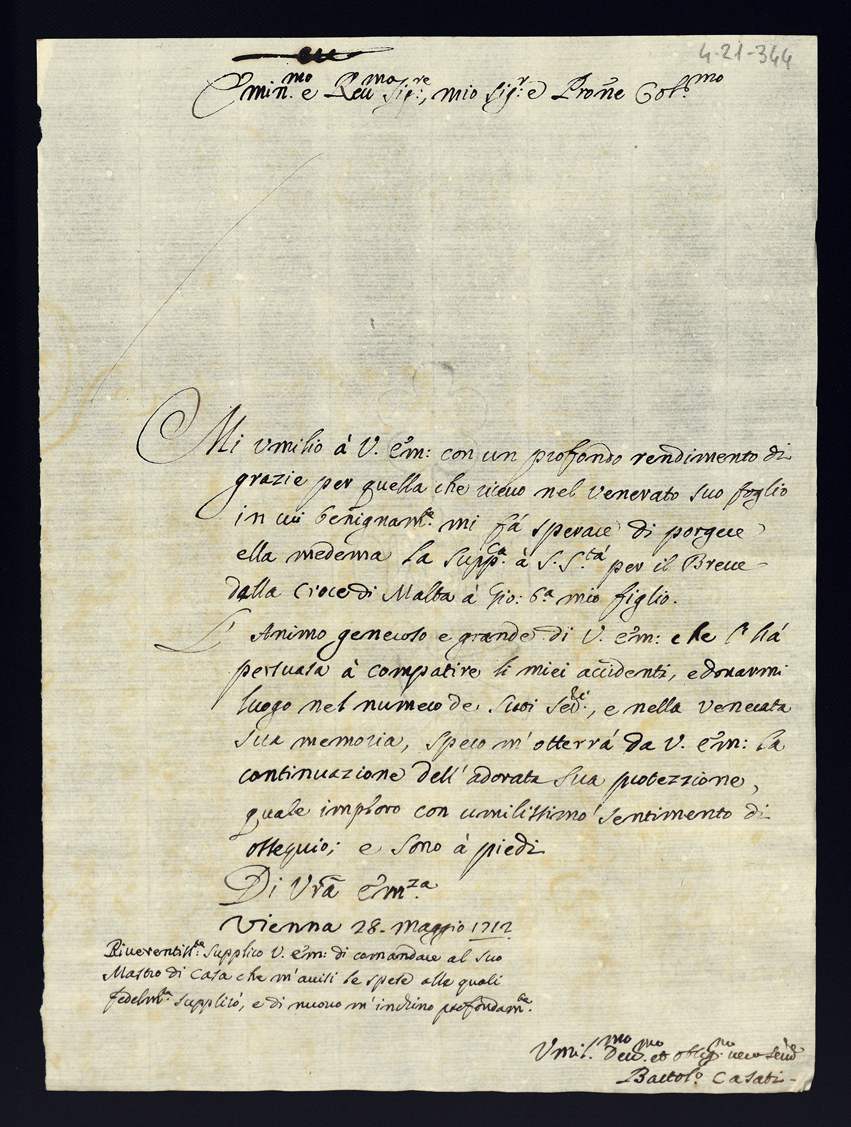 4-21-344
Emin.mo e Reu.mo Sig:re, mio Sig:r e Prone Col.mo
Mi vmilio à V. Em: con un profondo rendimento di
grazie per quella che riceuo nel venerato suo foglio
in cui benignam.te mi fá sperare di porgere
ella medema la supp.ca à S. S.tá per il Breue
dalla Croce di Malta à Gio: B.a mio figlio.
L' Animo generoso e grande di V. Em: che l' há
persuasa à compatire li miei accidenti, e donarmi
luogo nel numero de suoi, e nella venerata
sua memoria, spero m'otterrá da V. Em: la
continuazione dell' adorata sua protezzione,
quale imploro con umilissimo sentimento di
ossequio; e sono à piedi
Di Vrã Em.za
Vienna 28. Maggio 1712
Riuerentiss.te supplico V. Em: di comandare al suo
Mastro di Casa che m'auisi le spese alle quali
fedelm.te suppliró, e di nuouo m'inchino profondam.te
Vmil.mo Deu.mo et oblig.mo uero
Bartol.o Casati